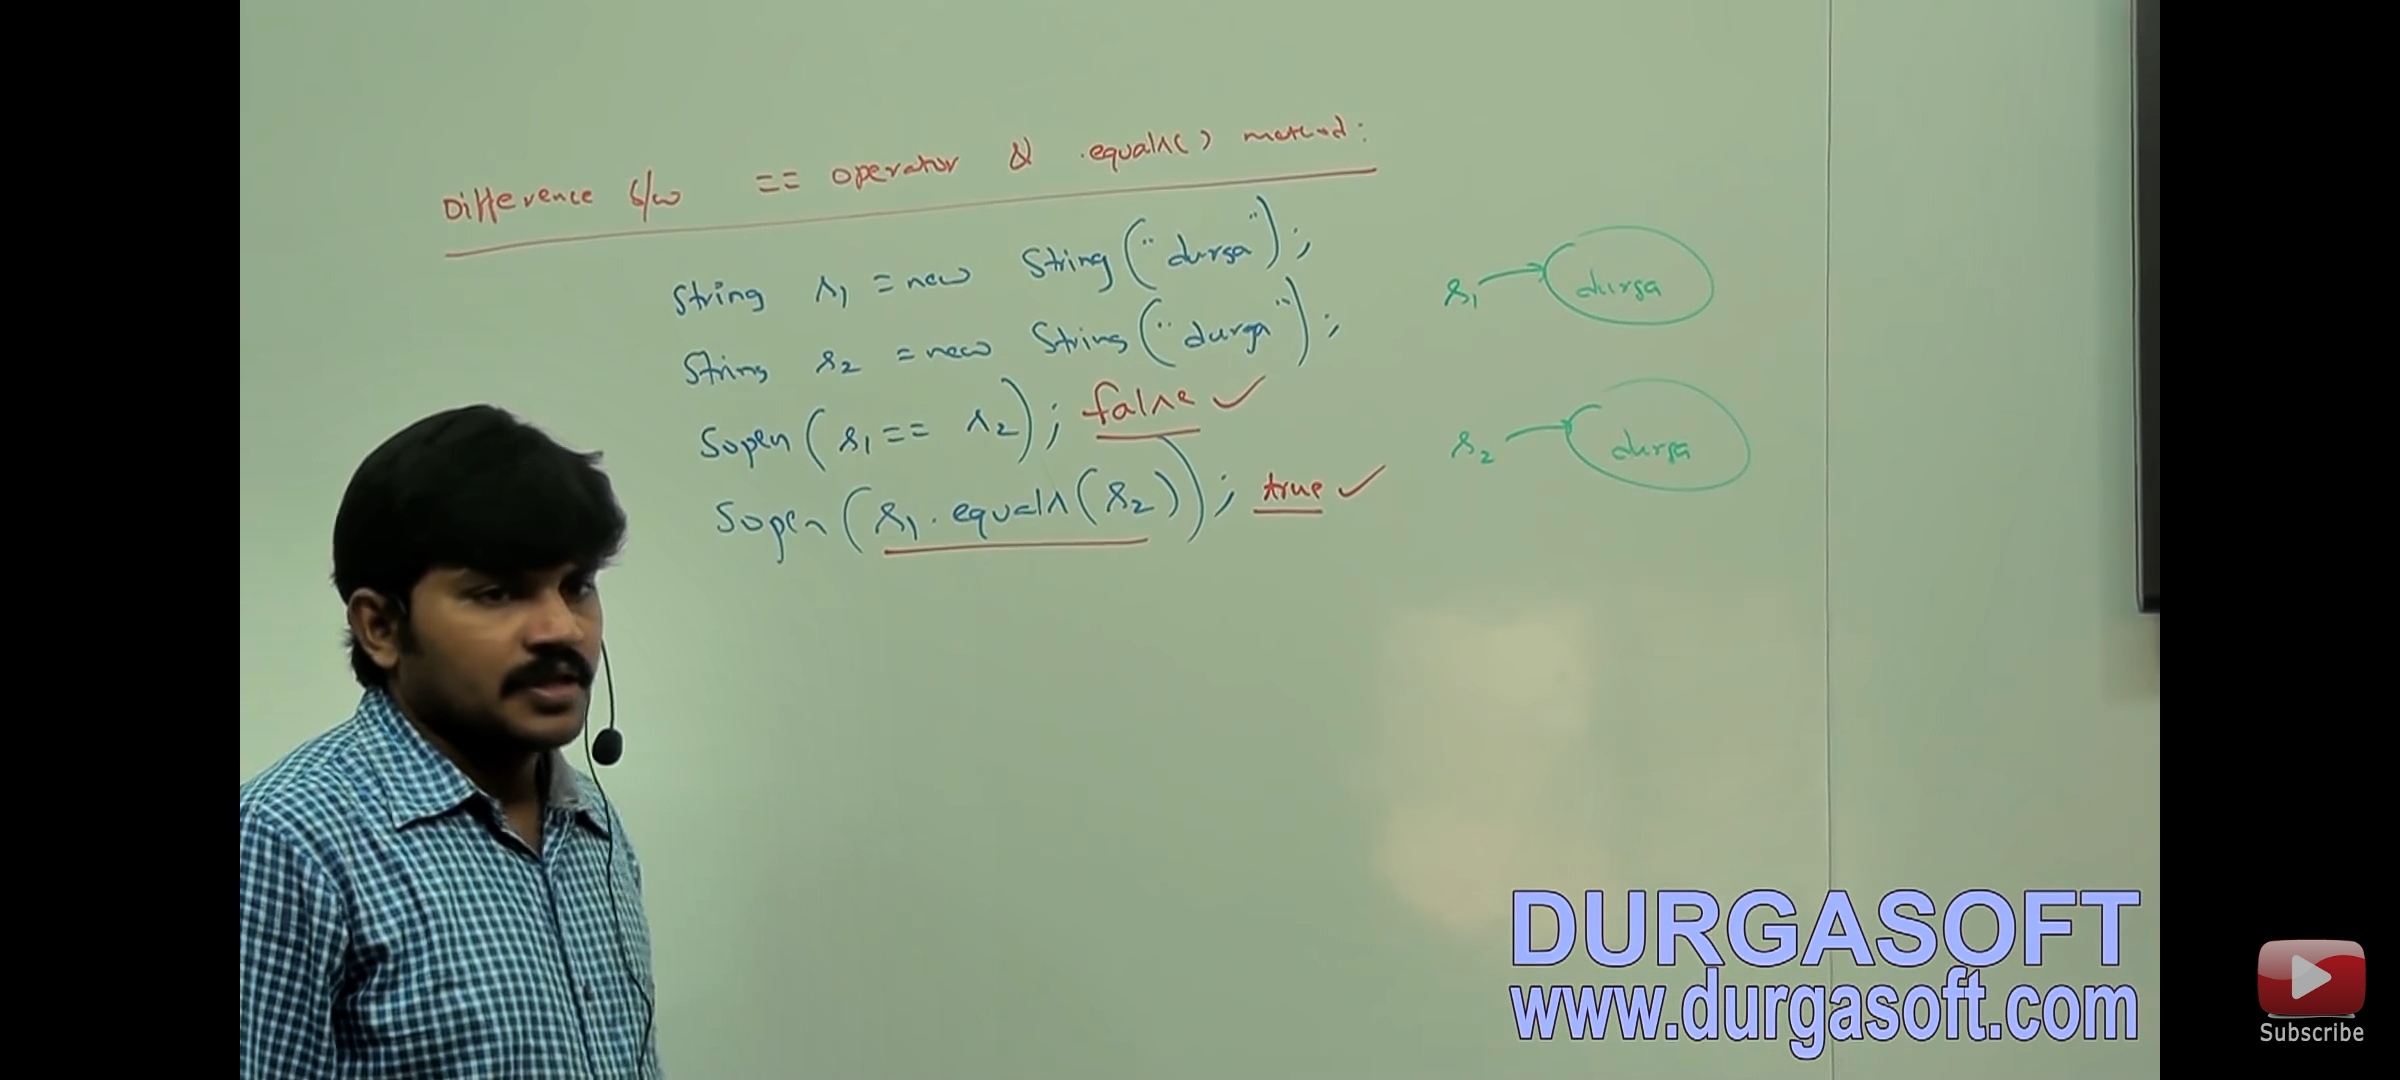 Difference b/w == operator & .equals() method:
String s1 = new String("durga");
String s2 = new String("durga");
Sopen(s1 == s2); false ✓
Sopen(s1.equals(s2)); true ✓
s1 → durga
s2 → durga
DURGASOFT
www.durgasoft.com
Subscribe